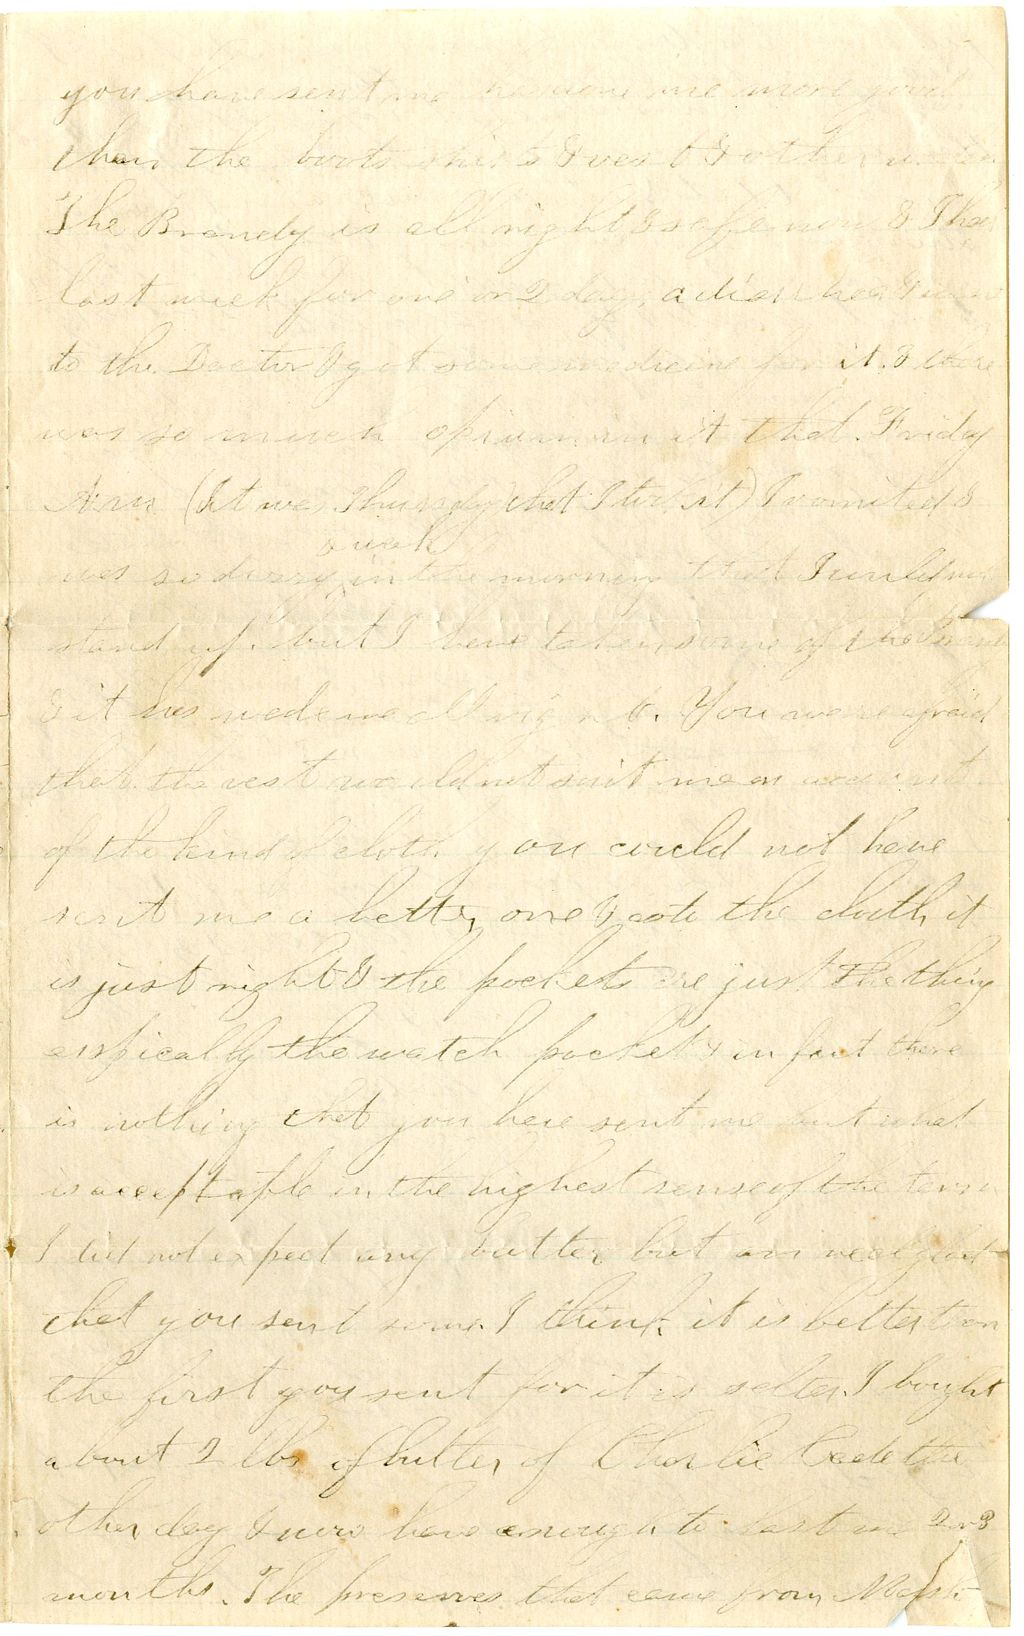 you have sent me has done me more good
than the boots shirts & vest & other
The Brandy is all right & safe now & I had
last week for one or 2 days a diarrhea & went
to the Doctor & got some medicine for it. & there
was so much opium in it that. Friday
(It was Thursday that I took it) I vomited &
& weak
was so dizzy in the morning that I could not
stand up. but I have taken some of the Brandy
& it has made me all right. You were afraid
that the vest would not suit me on account
of the kind of cloth you could not have
sent me a better one & as to the cloth it
is just right & the pockets are just the thing
espically the watch pocket & in fact there
is nothing that you have sent me but what
is acceptable in the highest sense of the term
I did not expect any butter but am real glad
that you sent some. I think it is better than
the first you sent for it is salter. I bought
about 2 lbs of butter of Charlie Cade the
other day & now have enough to last me 2 or 3
months. The preserves that came from